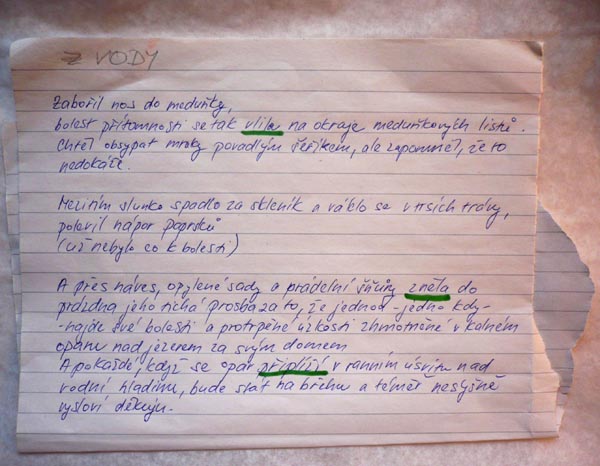 Z VODY
Zabořil nos do meduňky,
bolest přítomnosti se tak vlila na okraje meduňkových lístků.
Chtěl obsypat mraky povadlým šeříkem, ale zapomněl, že to
nedokáže.
Mezitím slunko spadlo za skleník a váklo se v trsích trávy,
polevil nápor paprsků
(už nebylo co k bolesti)
A přes náves, opylené sady a prádelní šňůry zněla do
prázdna jeho tichá prosba za to, že jednou - jedno kdy -
- najde své bolesti a protrpěné úzkosti zhmotněné v kalném
oparu nad jezerem za svým domem
A pokaždé, když se opar připlíží v ranním úsvitu nad
vodní hladinu, bude stát na břehu a téměř neslyšně
vysloví děkuju.